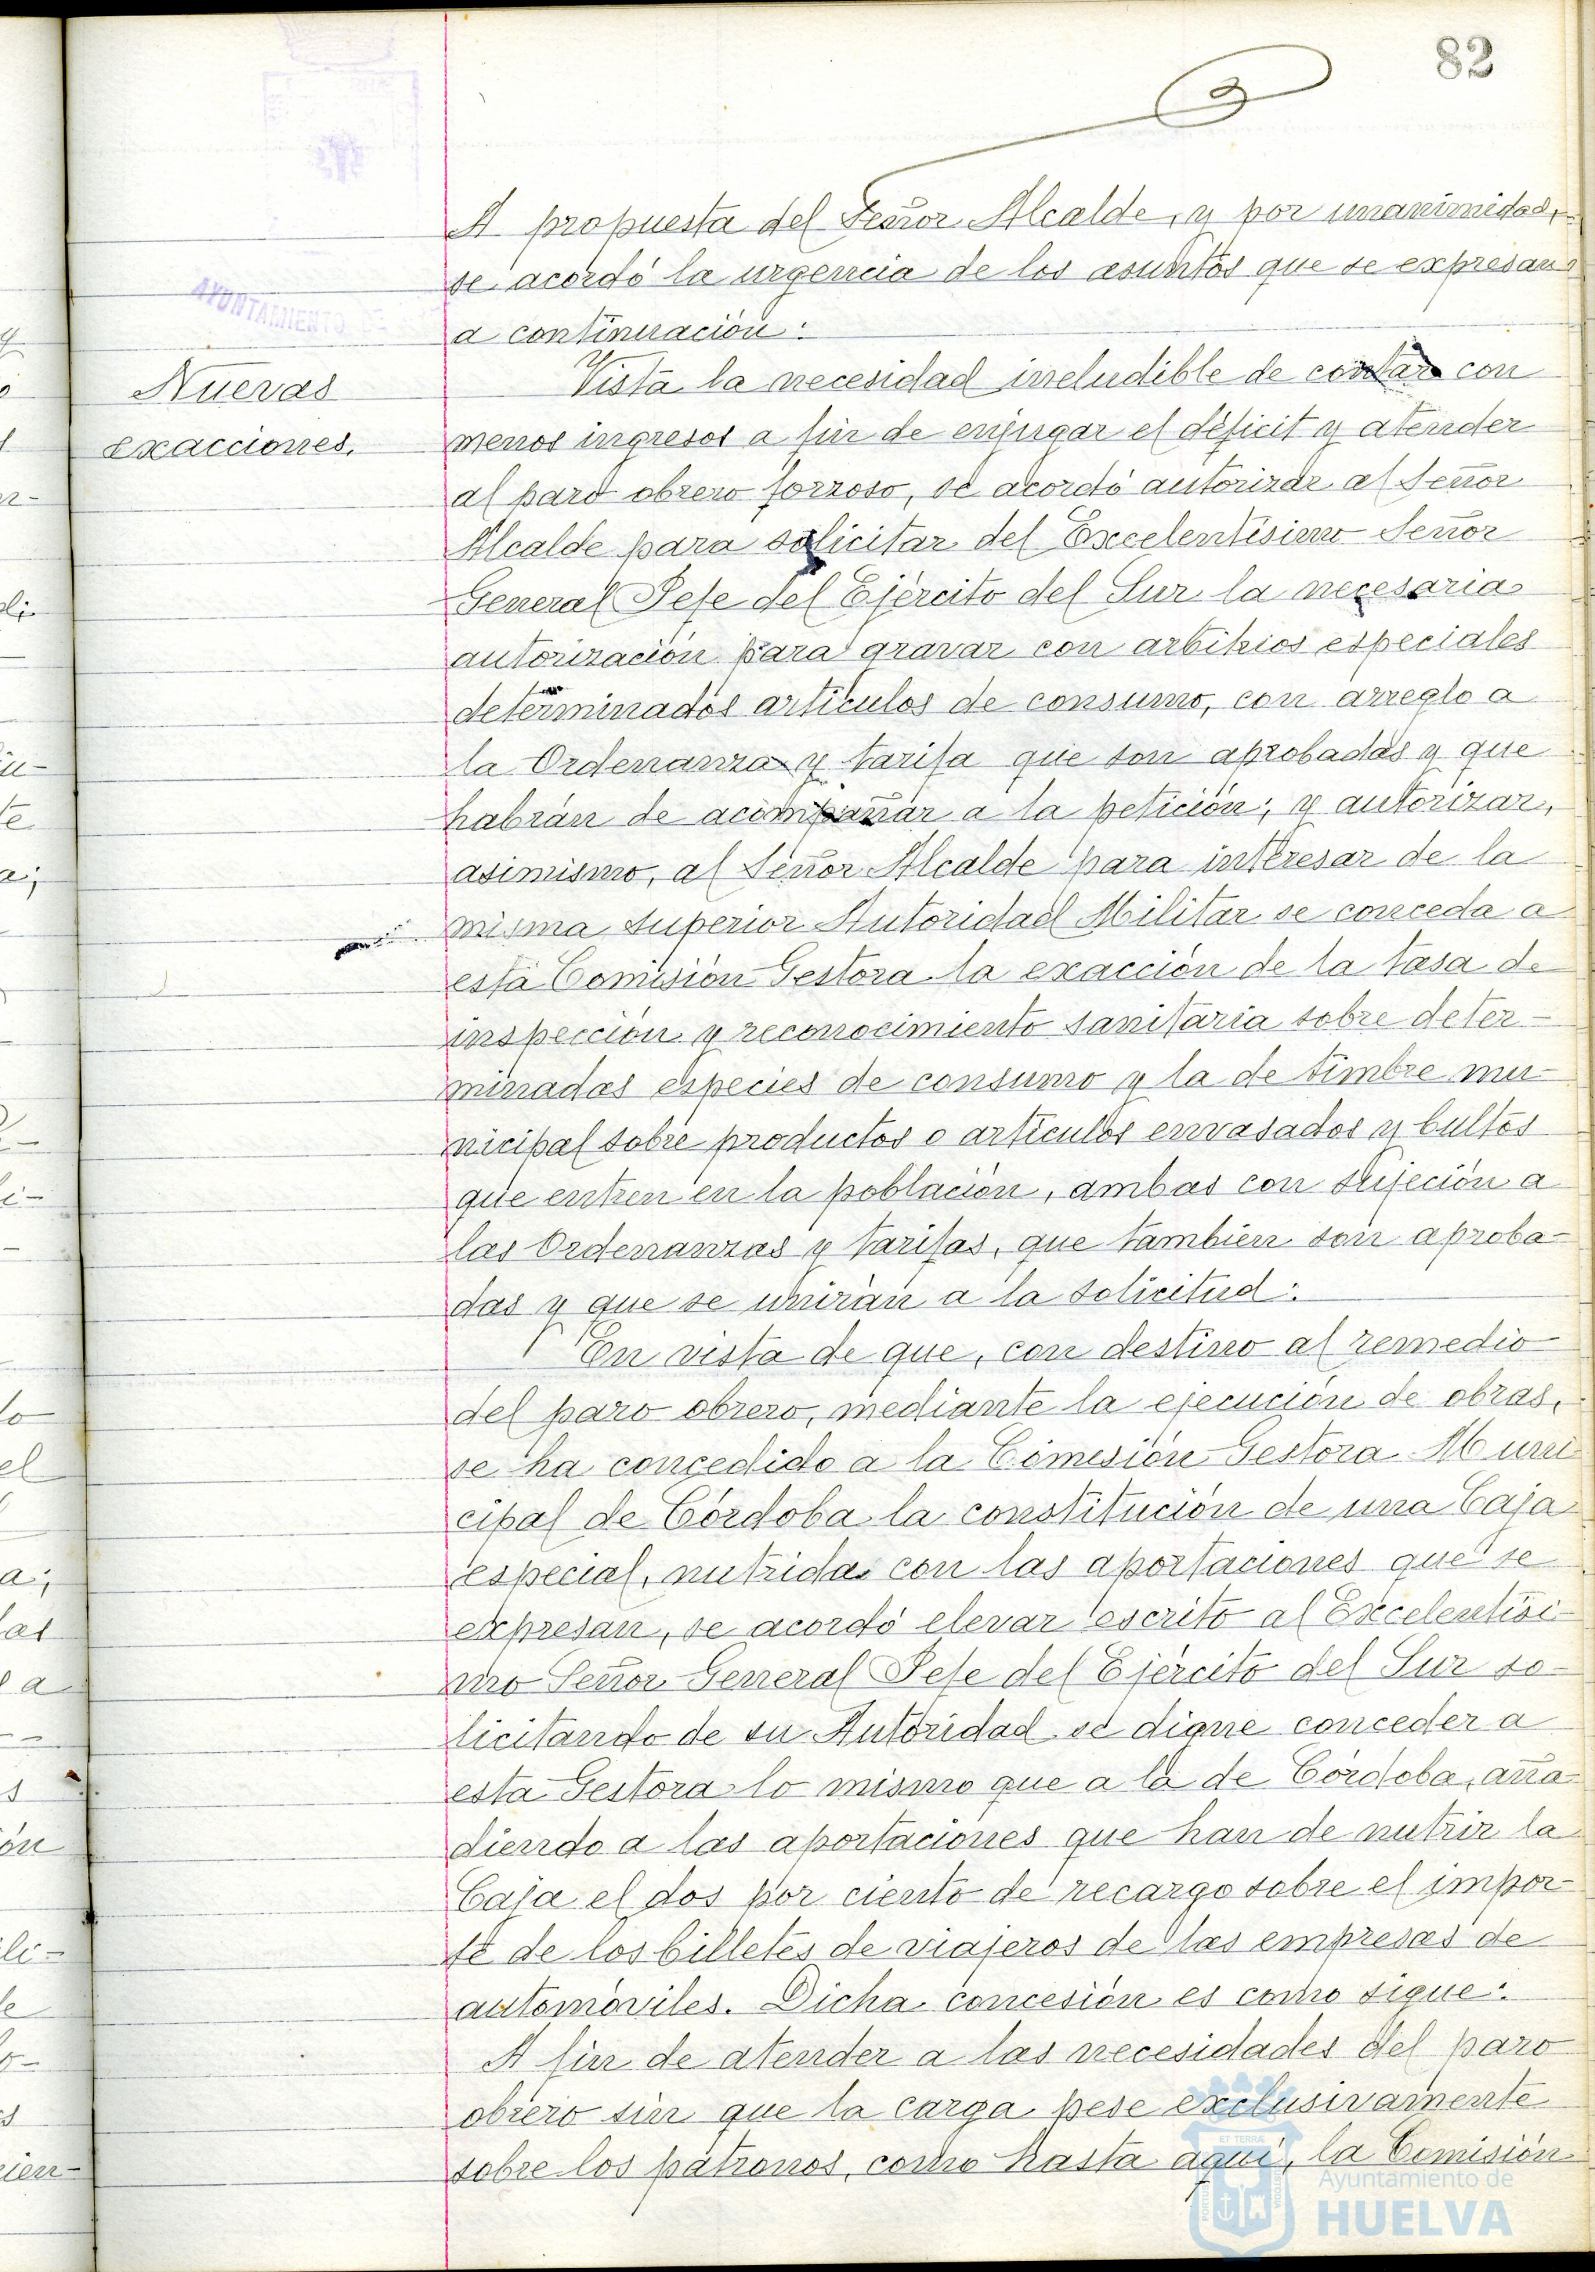 82
A propuesta del Señor Alcalde, y por unanimidad,
se acordó la urgencia de los asuntos que se expresan
a continuación:
AYUNTAMIENTO DE
Nuevas
exacciones.
Vista la necesidad ineludible de contar con
menos ingresos a fin de enjugar el déficit y atender
al paro obrero forzoso, se acordó autorizar al Señor
Alcalde para solicitar del Excelentísimo Señor
General Jefe del Ejército del Sur la necesaria
autorización para gravar con arbitrios especiales
determinados artículos de consumo, con arreglo a
la Ordenanza y tarifa que son aprobadas y que
habrán de acompañar a la petición; y autorizar,
asimismo, al Señor Alcalde para interesar de la
misma superior Autoridad Militar se conceda a
esta Comisión Gestora la exacción de la tasa de
inspección y reconocimiento sanitaria sobre deter-
minadas especies de consumo y la de timbre mu-
nicipal sobre productos o artículos envasados y bultos
que entren en la población, ambas con sujeción a
las Ordenanzas y tarifas, que también son aproba-
das y que se unirán a la solicitud:
En vista de que, con destino al remedio
del paro obrero, mediante la ejecución de obras,
se ha concedido a la Comisión Gestora Muni
cipal de Córdoba la constitución de una Caja
especial, nutrida con las aportaciones que se
expresan, se acordó elevar escrito al Excelentísi-
mo Señor General Jefe del Ejército del Sur so-
licitando de su Autoridad se digne conceder a
esta Gestora lo mismo que a la de Córdoba, aña-
diendo a las aportaciones que han de nutrir la
Caja el dos por ciento de recargo sobre el impor-
te de los billetes de viajeros de las empresas de
automóviles. Dicha concesión es como sigue:
A fin de atender a las necesidades del paro
obrero sin que la carga pese exclusivamente
sobre los patronos, como hasta aquí, la Comisión
Ayuntamiento de
HUELVA